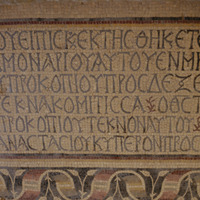 ΟΥΕΠΙΣΚΕΚΤΗΣΘΗΚΕΤΟ
ΜΟΝΑΡΙΟΥΑΥΤΟΥΕΝΜΗ
ΠΡΟΚΟΠΙΟΥΠΡΟΣΔΕΞΕ
ΤΕΚΝΑΚΟΜΙΤΙΣΣΑ
ΠΡΟΚΟΠΙΟΥΤΕΚΝΟΝΑΥΤΟΥ
ΑΝΑΣΤΑΣΙΟΥΚΥΠΕΡΟΝΠΡΟΣ